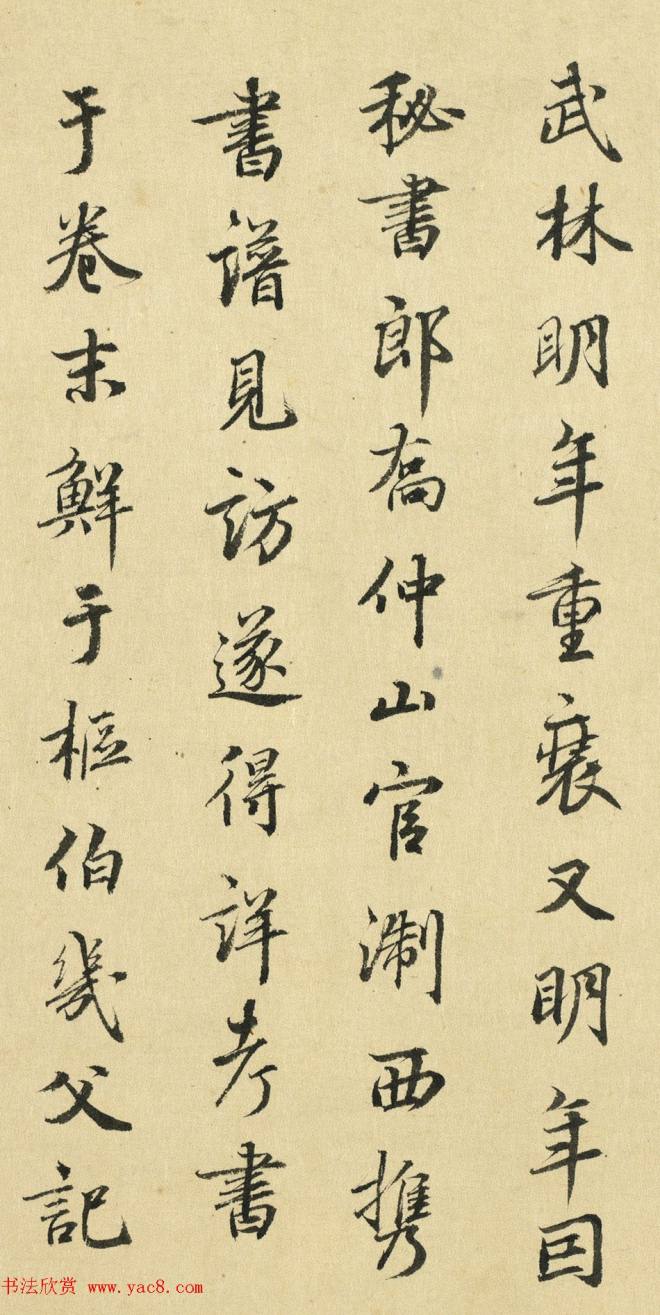 武林明年重裝又明年因
秘書郎喬仲山官淛西携
書譜見訪遂得詳考書
于卷末鮮于樞伯幾父記
书法欣赏 www.yac8.com